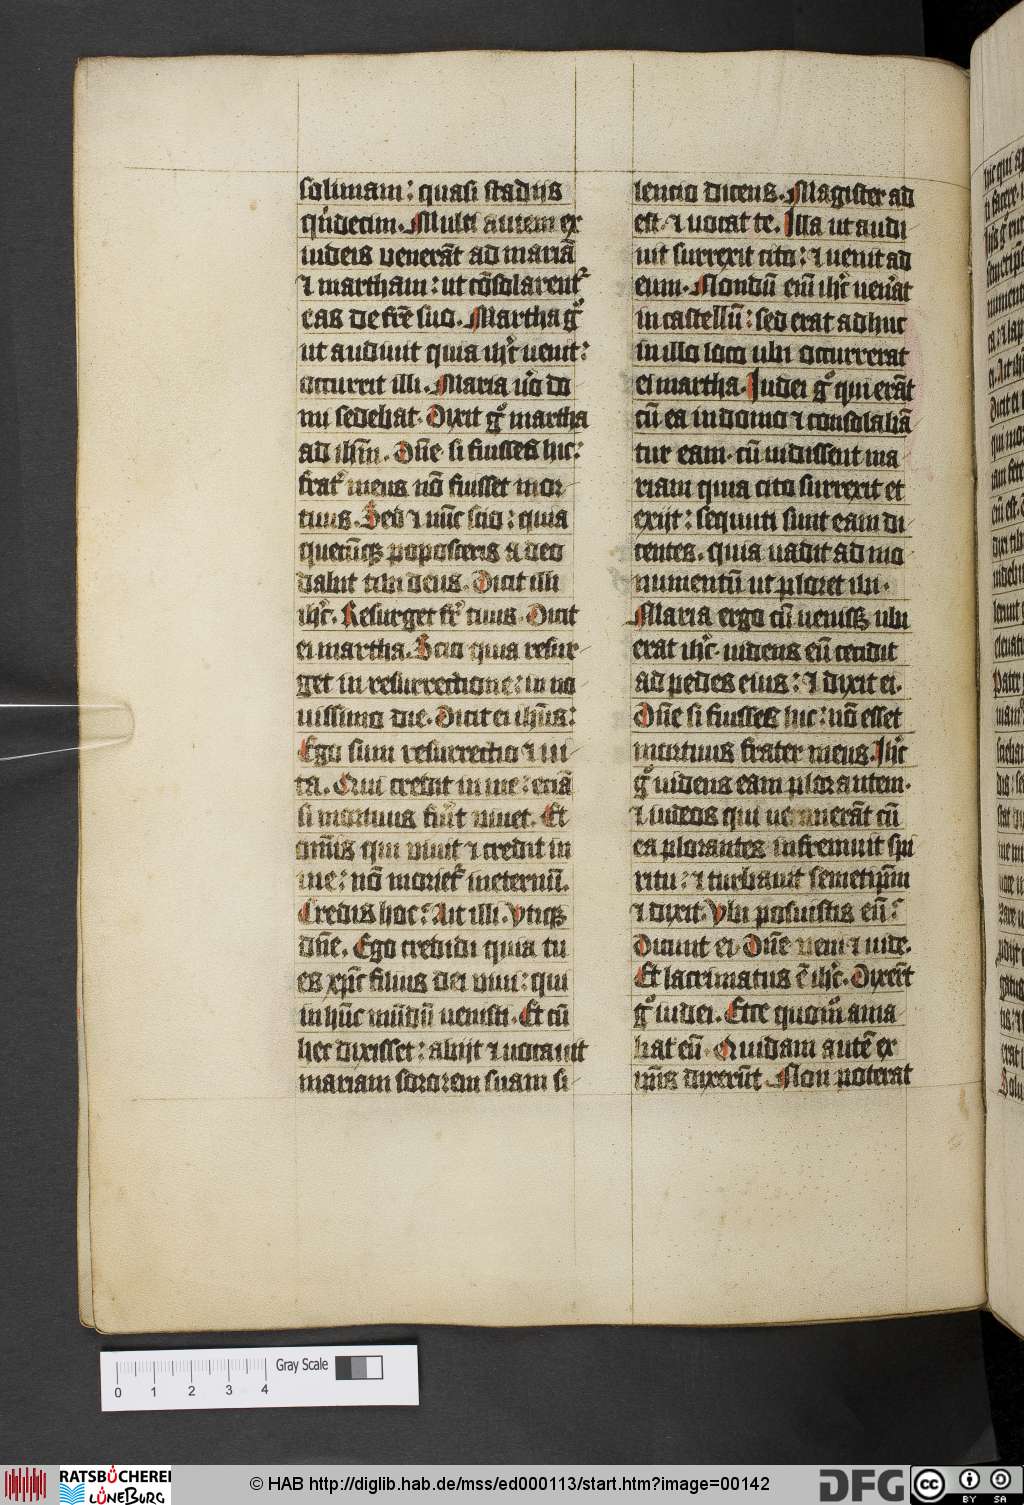 solimam: quasi stadijs
qᷓndecim. Multi autem ex
iudeis venerãt ad mariã
⁊ martham: ut cõsolarent᷑
eas de fr̃e suo. Martha gͦ
ut audiuit quia ihc̃ uenit:
occurrit illi. Maria uͦ do
mi sedebat. Dixit gͦ martha
ad ihm̃. Dñe si fuisses hic:
frat᷑ meus nõ fuisset mor-
tuus. Sed ⁊ nũc scio: quia
quecũqꝫ poposceris a deo
dabit tibi deus. Dicit illi
ihc̃. Resurget fr̃ tuus. Dicit
ei martha. Scio quia resur-
get in resurrectione: in no
uissimo die. Dicit ei ihũs:
Ego sum resurrectio ⁊ ui-
ta. Qui credit in me: eciã
si mortuus fu᷑it viuet. Et
omĩs qui viuit ⁊ credit in
me: nõ moriet᷑ ineternũ.
Credis hoc? Ait illi. Vtiqꝫ
dñe. Ego credidi quia tu
es xp̃c filius dei viui: qui
in hũc mũdũ uenisti. Et cũ
hec dixisset: abijt ⁊ uocauit
mariam sororem suam si-
lencio dicens. Magister ad
est ⁊ uocat te. Illa ut audi-
uit surrexit cito: ⁊ uenit ad
eum. Nondũ eĩ ihc̃ uen᷑at
in castellũ: sed erat adhuc
in illo loco ubi occurrerat
ei martha. Iudei gͦ qui erãt
cũ ea in domo ⁊ consolabã
tur eam. cũ uidissent ma
riam quia cito surrexit et
exijt: sequuti sunt eam di
centes. quia uadit ad mo-
numentũ ut ploret ibi.
Maria ergo cũ uenisꝫ ubi
erat ihc̃. uidens eũ cecidit
ad pedes eius: ⁊ dixit ei.
Dñe si fuisses hic: nõ esset
mortuus frater meus. Ihc̃
gͦ uidens eam plorantem.
⁊ iudeos qui uenerãt cũ
ea plorantes infremuit spi
ritu: ⁊ turbauit semetip̃m
⁊ dixit. Vbi posuistis eũ?
Dicunt ei. Dñe veni ⁊ uide.
Et lacrimatus ẽ ihc̃. Dixer̃t
gͦ iudei. Ecce quomͦ ama-
bat eũ. Quidam autẽ ex
ip̃is dixerũt. Non poterat
0 1 2 3 4 Gray Scale
RATSBÜCHEREI
LÜNEBURG
© HAB http://diglib.hab.de/mss/ed000113/start.htm?image=00142
DFG
cc BY SA